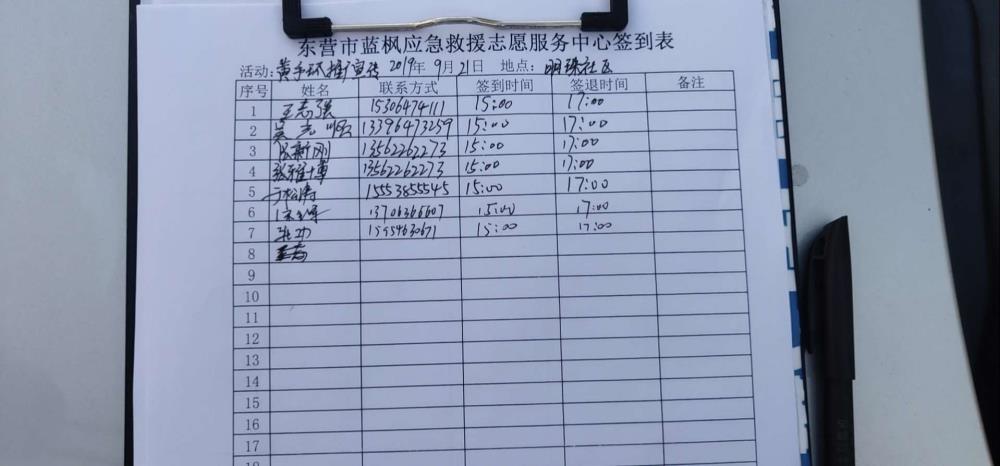 东营市蓝枫应急救援志愿服务中心签到表
活动：黄手环推广宣传 2019年 9月21日 地点：明珠社区
序号 姓名 联系方式 签到时间 签退时间 备注
1 王志强 15306474111 15:00 17:00
2 吴志顺 13396473259 15:00 17:00
3 张新刚 13562262273 15:00 17:00
4 张雅博 13562262273 15:00 17:00
5 于松涛 15553855545 15:00 17:00
6 15:00 17:00
7 15:00 17:00
8
9
10
11
12
13
14
15
16
17